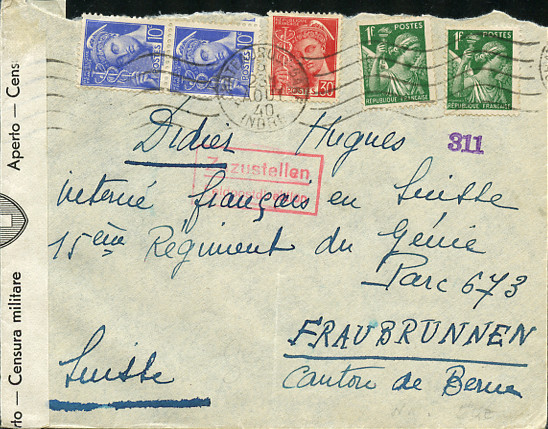 Aperto — Cens
rto — Censura militare
10c
10c
POSTES
30c
1F POSTES
RÉPUBLIQUE FRANÇAISE
1F POSTES
RÉPUBLIQUE FRANÇAISE
AOUT
40
INDRE
311
Didier Hugues
Zuzustellen
interné français en Suisse
15ème Régiment du Génie
Parc 673
FRAUBRUNNEN
Suisse
Canton de Berne